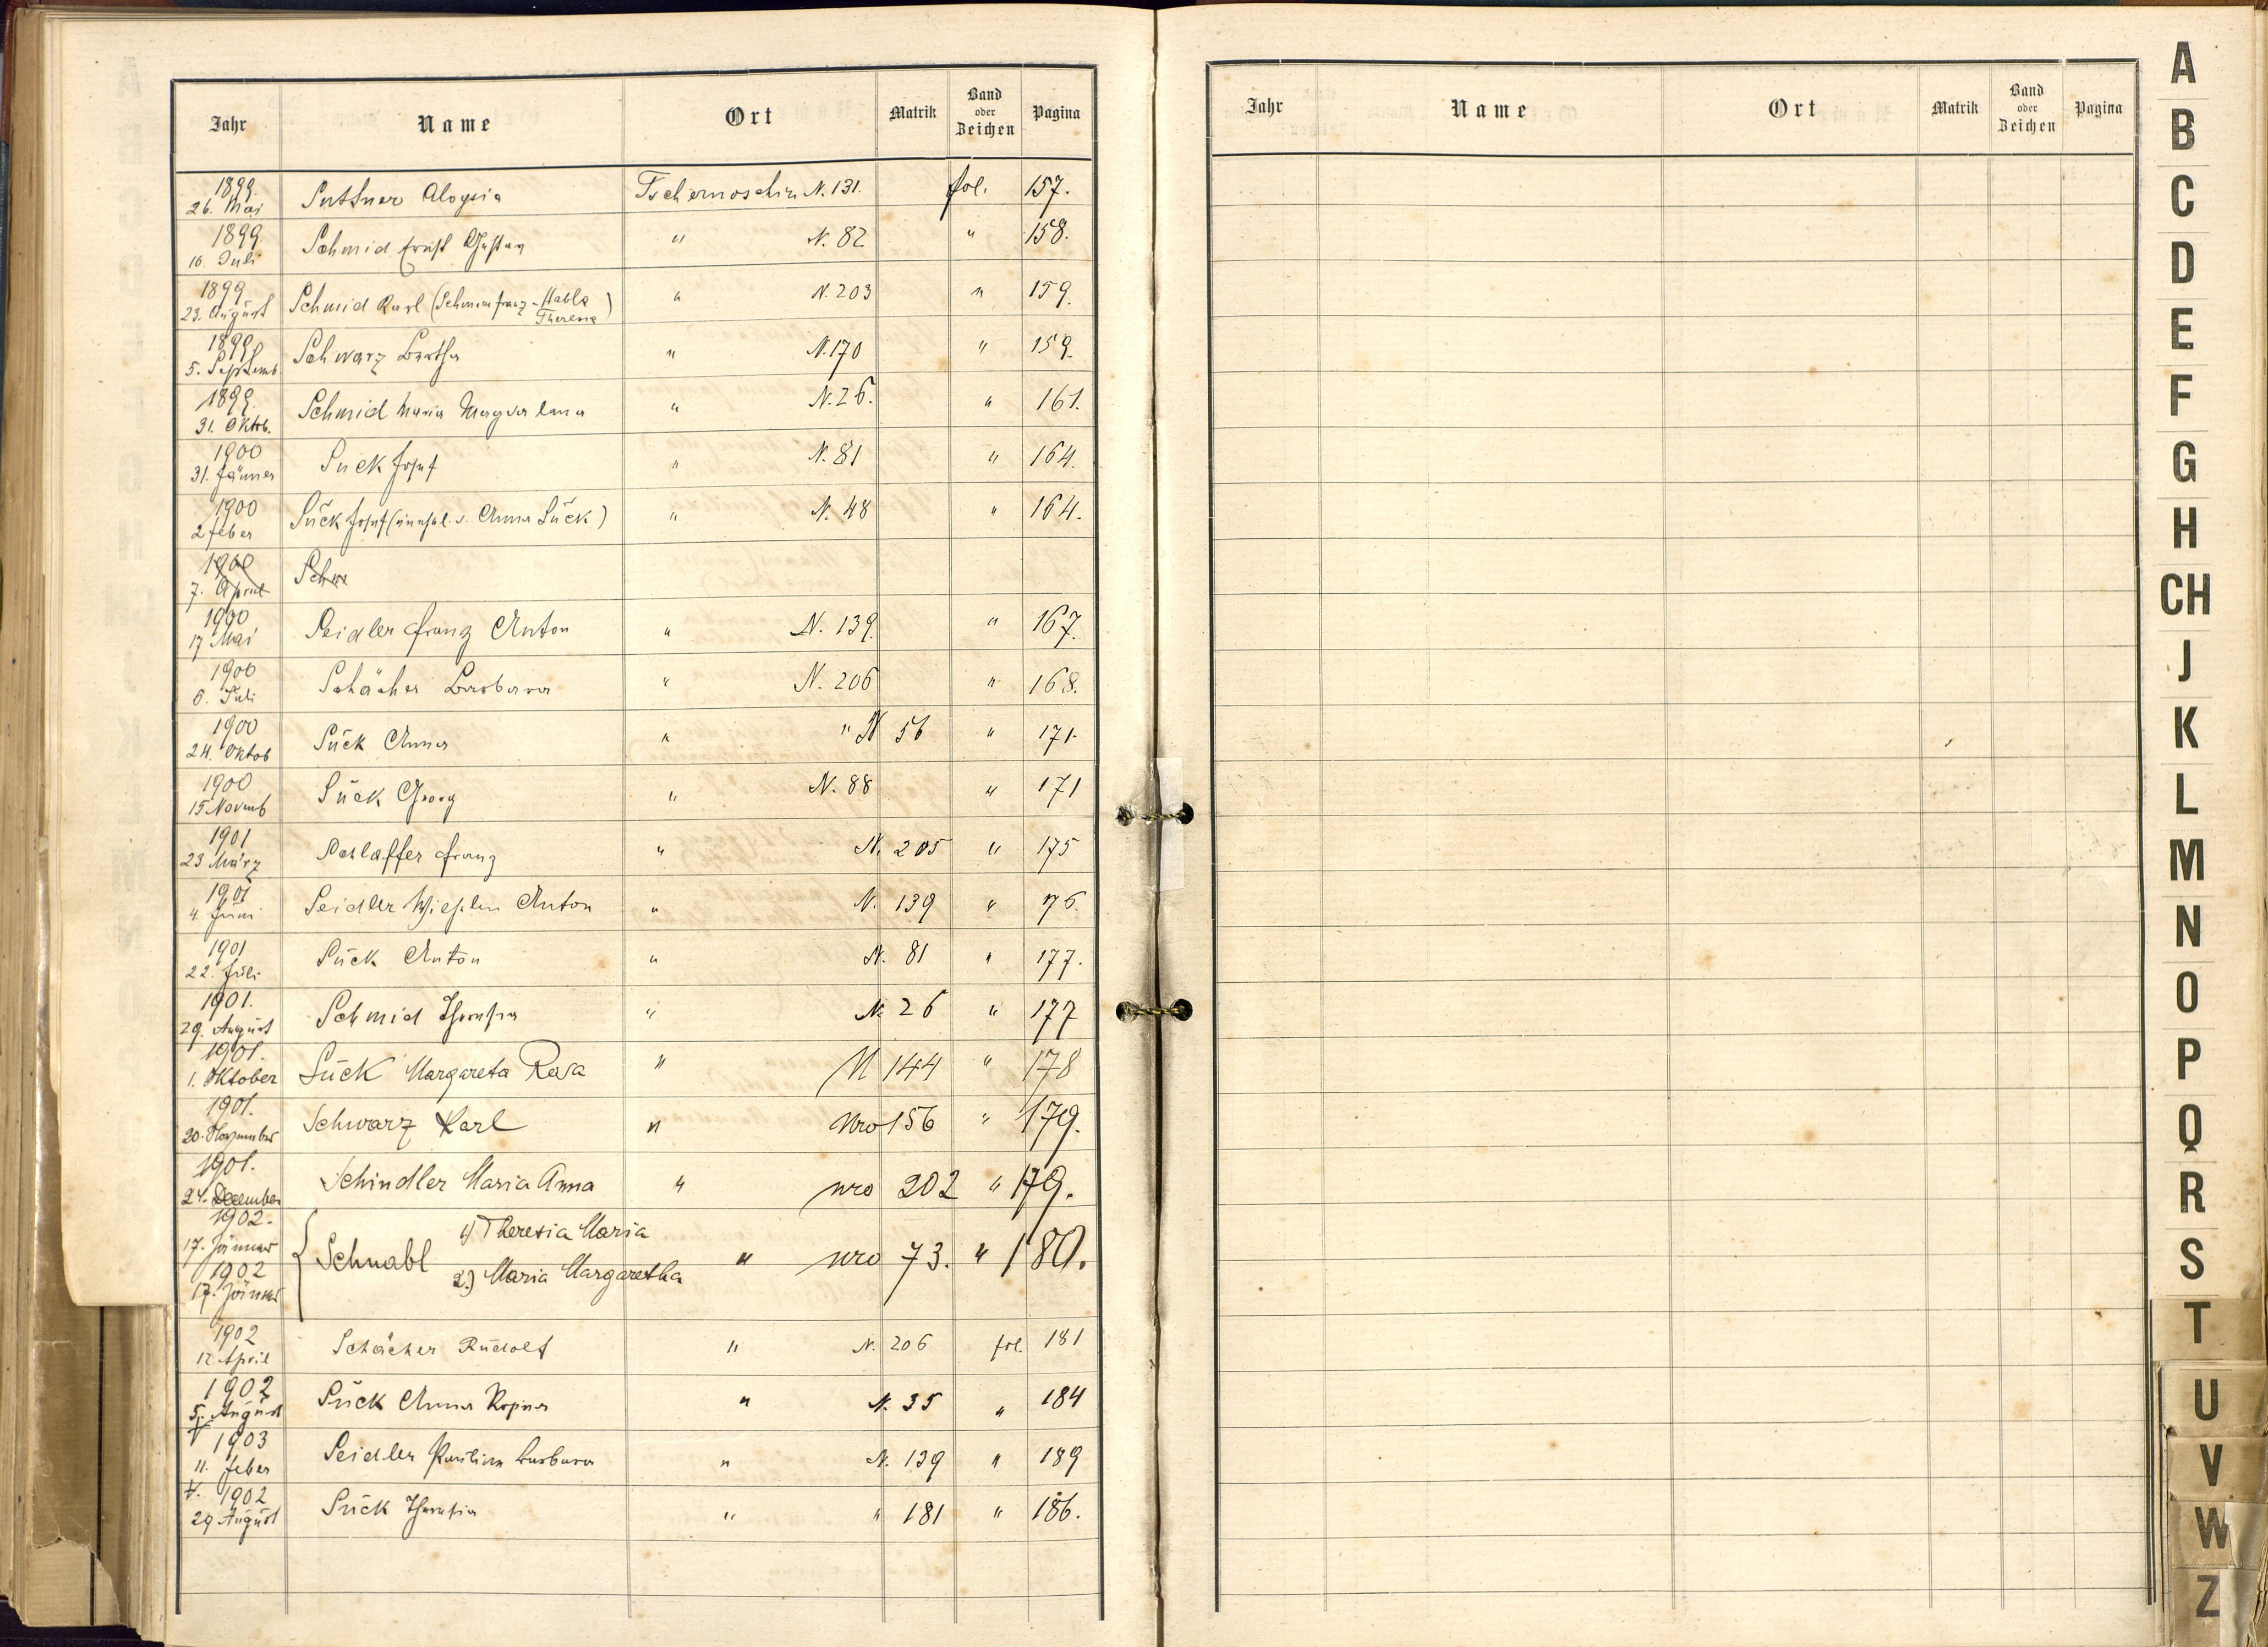 Jahr Name Ort Matrik Band oder Zeichen Pagina
1899. 26. Mai Suttner Aloysia Tschernoschin N. 131. fol. 157.
1899 16. Juli Schmid Ernst Gustav " N. 82 " 158.
1899 23. August Schmid Karl (Schmid Franz - Habla Theresia) " N. 203 " 159.
1899 5. Septemb. Schwarz Bertha " N. 170 " 159.
1899. 31. Oktob. Schmid Maria Magdalena " N. 26. " 161.
1900 31. Jänner Sück Josef " N. 81 " 164.
1900 2 Feber Sück Josef (unehel. d. Anna Sück) " N. 48 " 164.
1900 7. April Schw
1900 17 Mai Seidler Franz Anton " N. 139. " 167.
1900 6. Juli Schächer Barbara " N. 206 " 168.
1900 24. Oktob Sück Anna " " N 56 " 171.
1900 15 Novemb Sück Georg " N. 88 " 171
1901 23 März Schlaffer Franz " N. 205 " 175
1901 4 Juni Seidler Wilhelm Anton " N. 139 " 176.
1901 22. Juli Sück Anton " N. 81 " 177.
1901. 29. August Schmid Theresia " N. 26 " 177
1901. 1. Oktober Sück Margareta Rosa " N 144 " 178
1901. 20. November Schwarz Karl " Nro 156 " 179.
1901. 24. December Schindler Maria Anna " nro 202 " 179.
1902. 17. Jänner 1902 17. Jänner Schnabl 1) Theresia Maria 2.) Maria Margaretha " nro 73. " 180.
1902 12 April Schächer Rudolf " N. 206 fol. 181
1902 5. August Sück Anna Rosina " N. 35 " 184
1903 11. Feber Seidler Paulina Barbara " N. 139 " 189
V. 1902 29 August Sück Theresia " " 181 " 186.
Jahr Name Ort Matrik Band oder Zeichen Pagina
A
B
C
D
E
F
G
H
CH
J
K
L
M
N
O
P
Q
R
S
T
U
V
W
Z